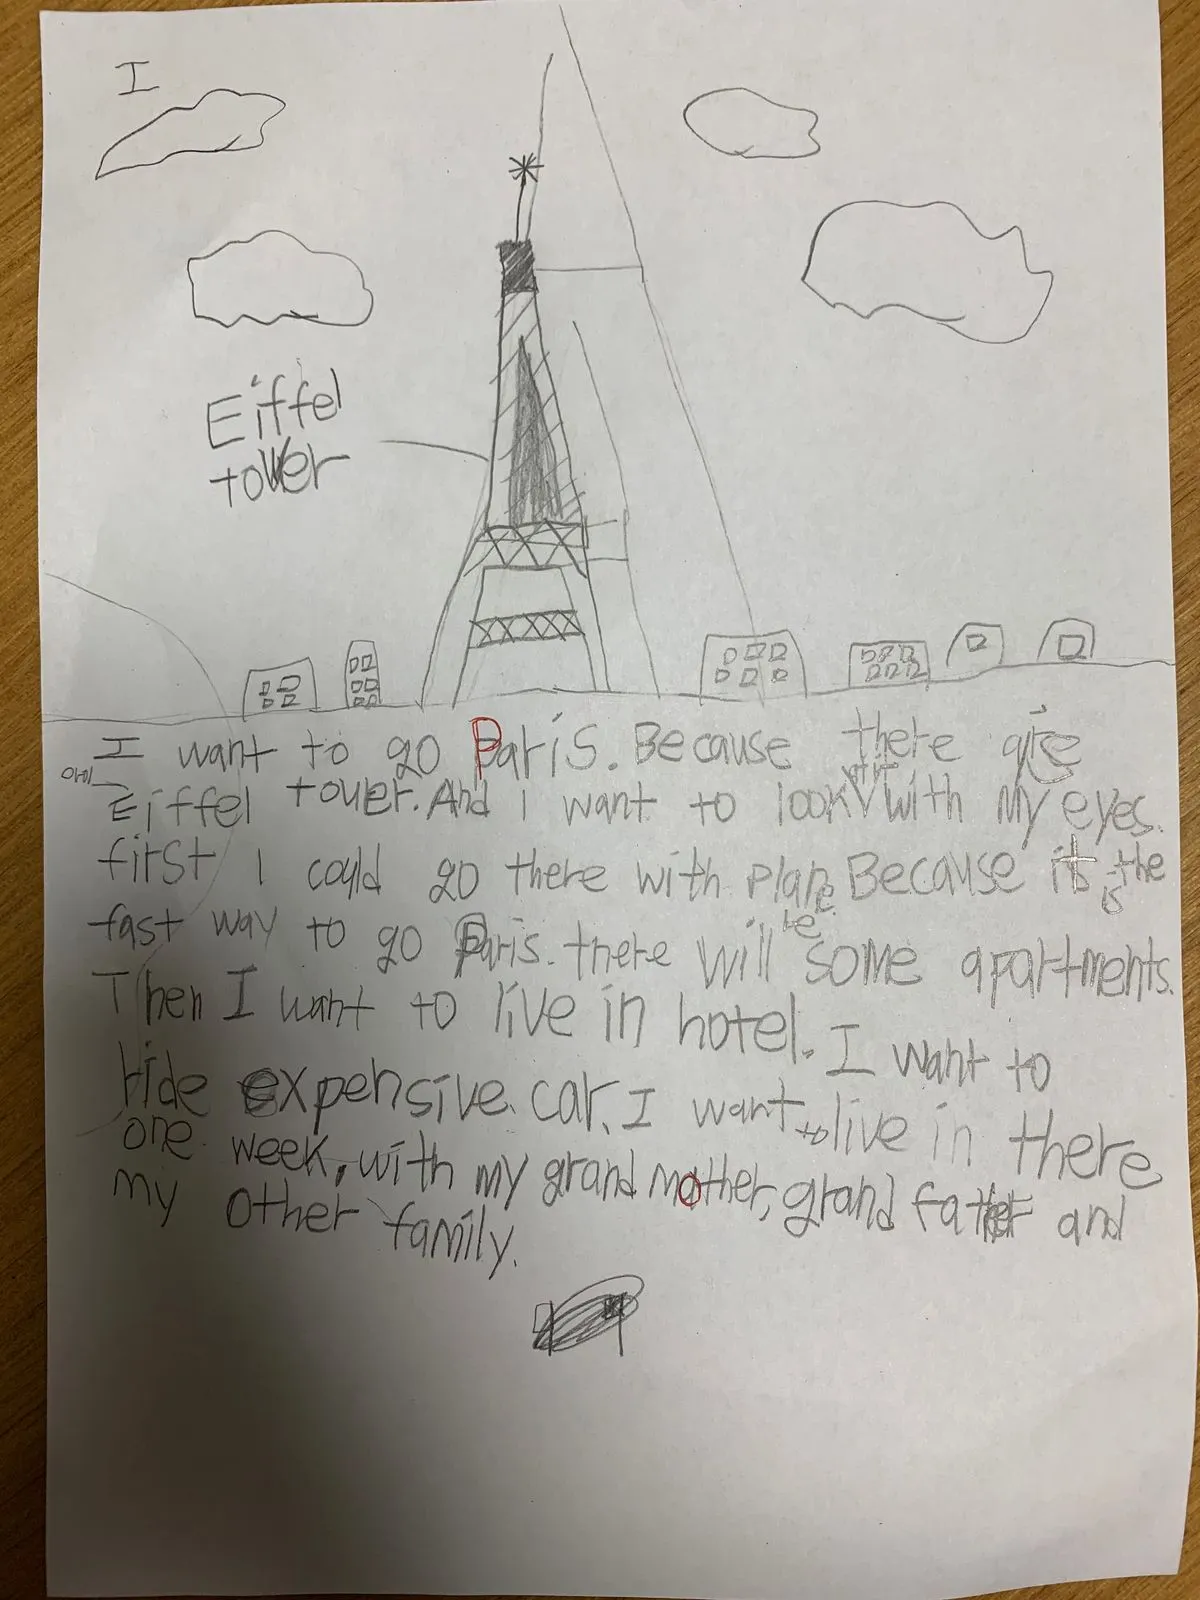 I
Eiffel
tower
I want to go Paris. Because there are
에
Eiffel tower. And I want to look at it with my eyes.
first I could go there with plane. Because it is the
fast way to go Paris. there will be some apartments.
Then I want to live in hotel. I want to
ride expensive car. I want to live in there
one week, with my grand mother, grand father and
my other family.